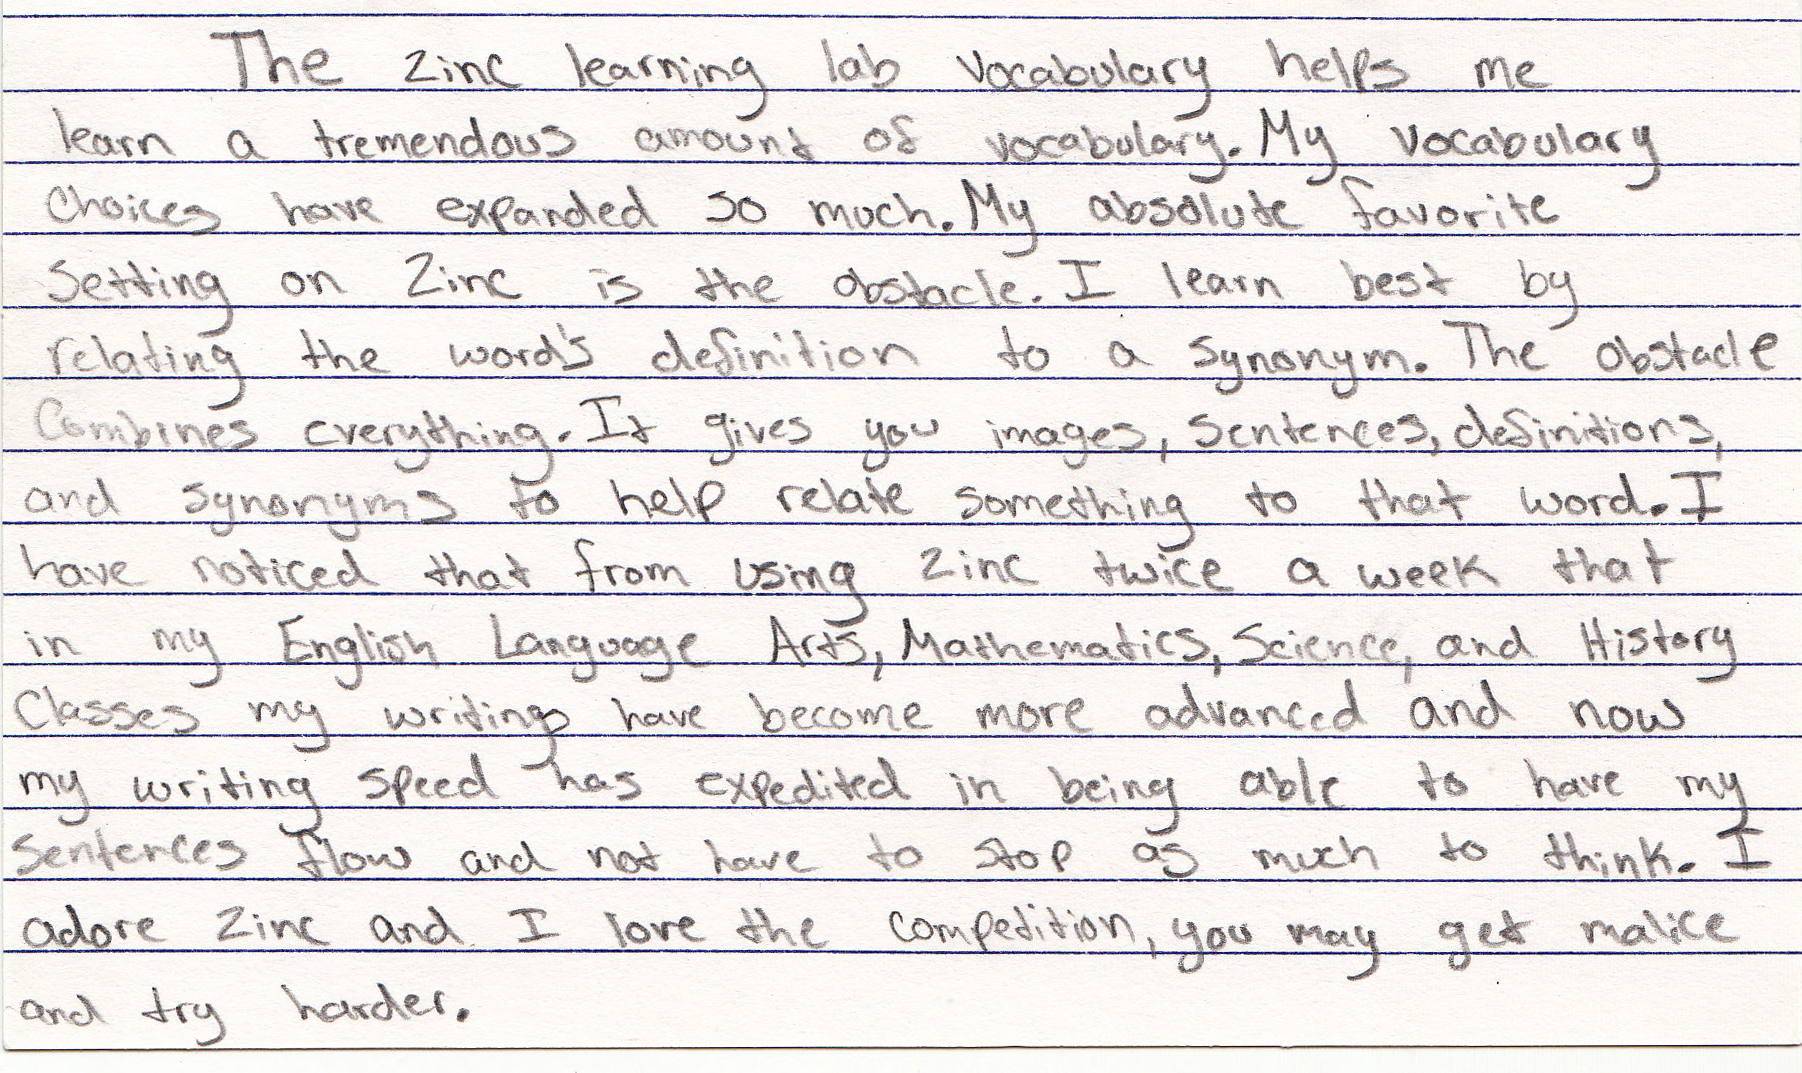 The Zinc learning lab vocabulary helps me
learn a tremendous amount of vocabulary. My vocabulary
choices have expanded so much. My absolute favorite
setting on Zinc is the obstacle. I learn best by
relating the word's definition to a synonym. The obstacle
combines everything. It gives you images, sentences, definitions,
and synonyms to help relate something to that word. I
have noticed that from using Zinc twice a week that
in my English Language Arts, Mathematics, Science, and History
classes my writings have become more advanced and now
my writing speed has expedited in being able to have my
sentences flow and not have to stop as much to think. I
adore Zinc and I love the competition, you may get malice
and try harder.